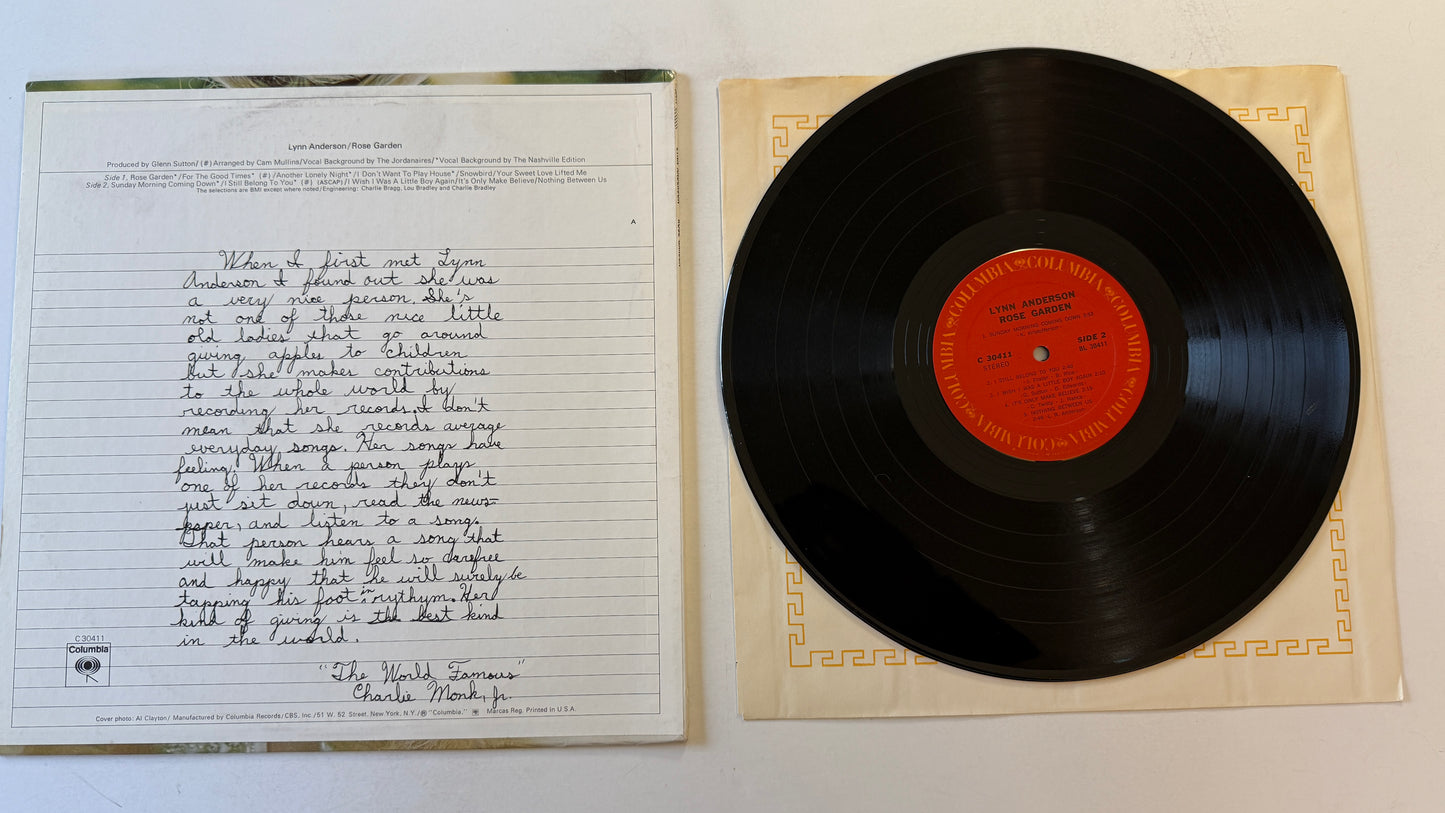 Lynn Anderson/Rose Garden
Produced by Glenn Sutton/ (#) Arranged by Cam Mullins/Vocal Background by The Jordanaires/*Vocal Background by The Nashville Edition
Side 1. Rose Garden*/For The Good Times* (#) /Another Lonely Night*/I Don't Want To Play House*/Snowbird/Your Sweet Love Lifted Me
Side 2. Sunday Morning Coming Down*/I Still Belong To You* (#) (ASCAP)/I Wish I Was A Little Boy Again/It's Only Make Believe/Nothing Between Us
The selections are BMI except where noted/Engineering: Charlie Bragg, Lou Bradley and Charlie Bradley
A
When I first met Lynn
Anderson I found out she was
a very nice person. She's
not one of those nice little
old ladies that go around
giving apples to children
but she makes contributions
to the whole world by
recording her records. I don't
mean that she records average
everyday songs. Her songs have
feeling. When a person plays
one of her records they don't
just sit down, read the news-
paper, and listen to a song.
That person hears a song that
will make him feel so carefree
and happy that he will surely be
tapping his foot in rythym. Her
kind of giving is the best kind
in the world.
"The World Famous"
Charlie Monk, Jr.
C 30411
Columbia
Cover photo: Al Clayton/ Manufactured by Columbia Records/CBS, Inc./51 W. 52 Street, New York, N.Y./® "Columbia," Marcas Reg. Printed in U.S.A.
COLUMBIA COLUMBIA COLUMBIA COLUMBIA COLUMBIA COLUMBIA
LYNN ANDERSON
ROSE GARDEN
1. SUNDAY MORNING COMING DOWN
K. Kristofferson
C 30411
STEREO
SIDE 2
BL 30411
2. I STILL BELONG TO YOU 2:40
3. I WISH I WAS A LITTLE BOY AGAIN 2:10
G. Sutton - D. Edwards
4. IT'S ONLY MAKE BELIEVE 2:19
C. Twitty - J. Nance
5. NOTHING BETWEEN US